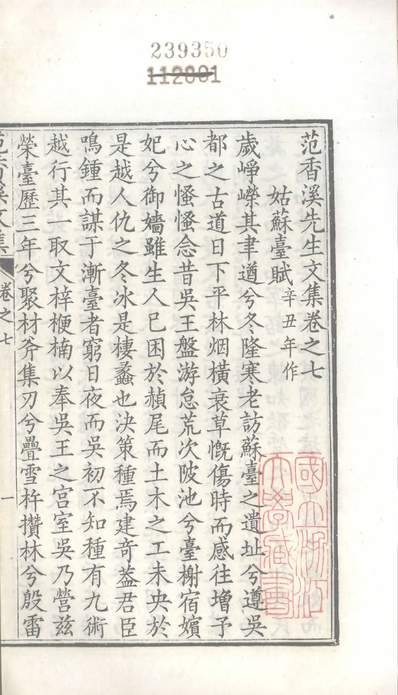 239350
112801
范香溪先生文集卷之七
姑蘇臺賦 辛丑年作
歲崢嶸其聿遒兮冬隆寒老訪蘇臺之遺址兮遵吳
都之古道日下平林烟橫衰草慨傷時而感往增予
心之慅慅念昔吳王盤游怠荒次陂池兮臺榭宿嬪
妃兮御嬙雖生人已困於頳尾而土木之工未央於
是越人仇之冬冰是棲蠡也決策種焉建奇蓋君臣
鳴鍾而謀于漸臺者窮日夜而吳初不知種有九術
越行其一取文梓楩楠以奉吳王之宮室吳乃營茲
榮臺歷三年兮聚材斧集刃兮疊雪杵攢林兮殷雷
范香溪文集
卷之七
一